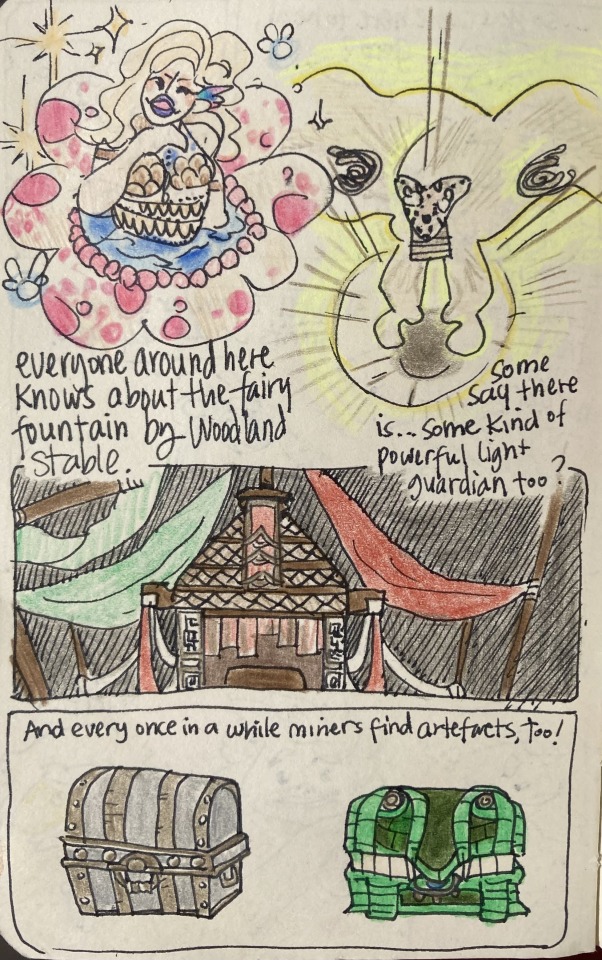 everyone around here
knows about the fairy
fountain by Woodland
Stable.
Some
say there
is... some kind of
powerful light
guardian too?
And every once in a while miners find artefacts, too!